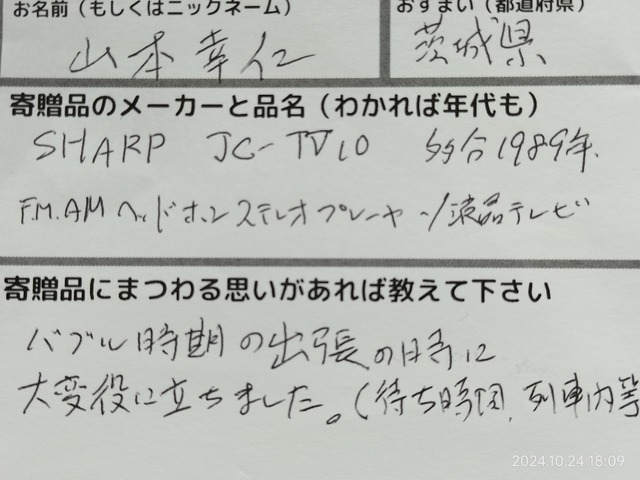 お名前（もしくはニックネーム）
おすまい（都道府県）
山本幸仁
茨城県
寄贈品のメーカーと品名（わかれば年代も）
SHARP JC-TV10 1989年.
F.M.AMヘッドホンステレオプレーヤー/液晶テレビ
寄贈品にまつわる思いがあれば教えて下さい
バブル時期の出張の時に
大変役に立ちました。（待ち時間,列車内等
2024.10.24 18:09